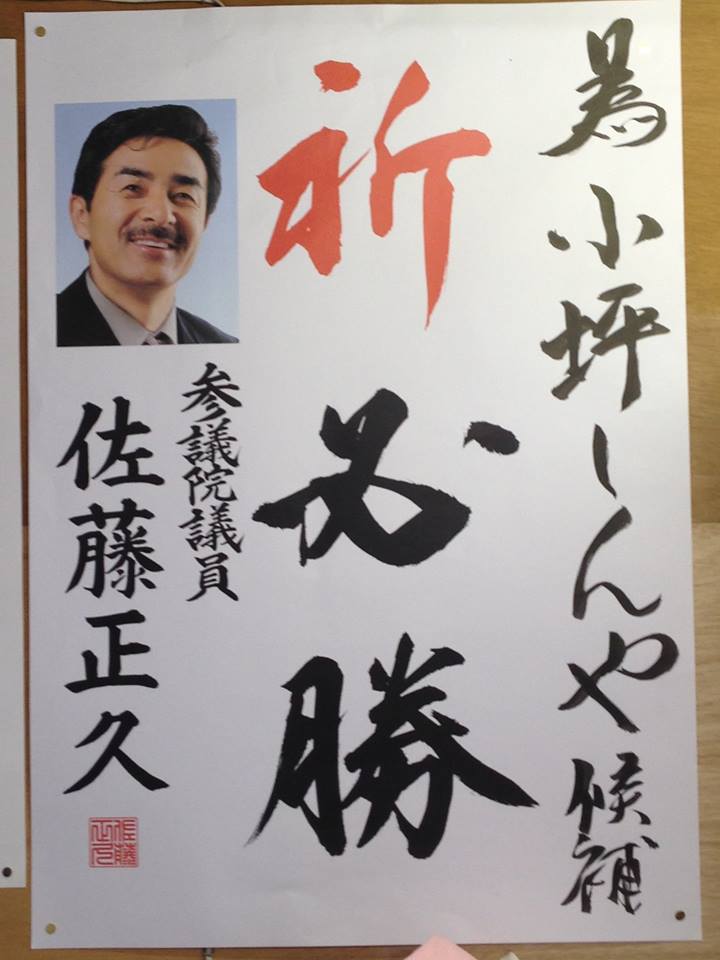 為小坪しんや候補
祈必勝
参議院議員
佐藤正久
佐藤正久